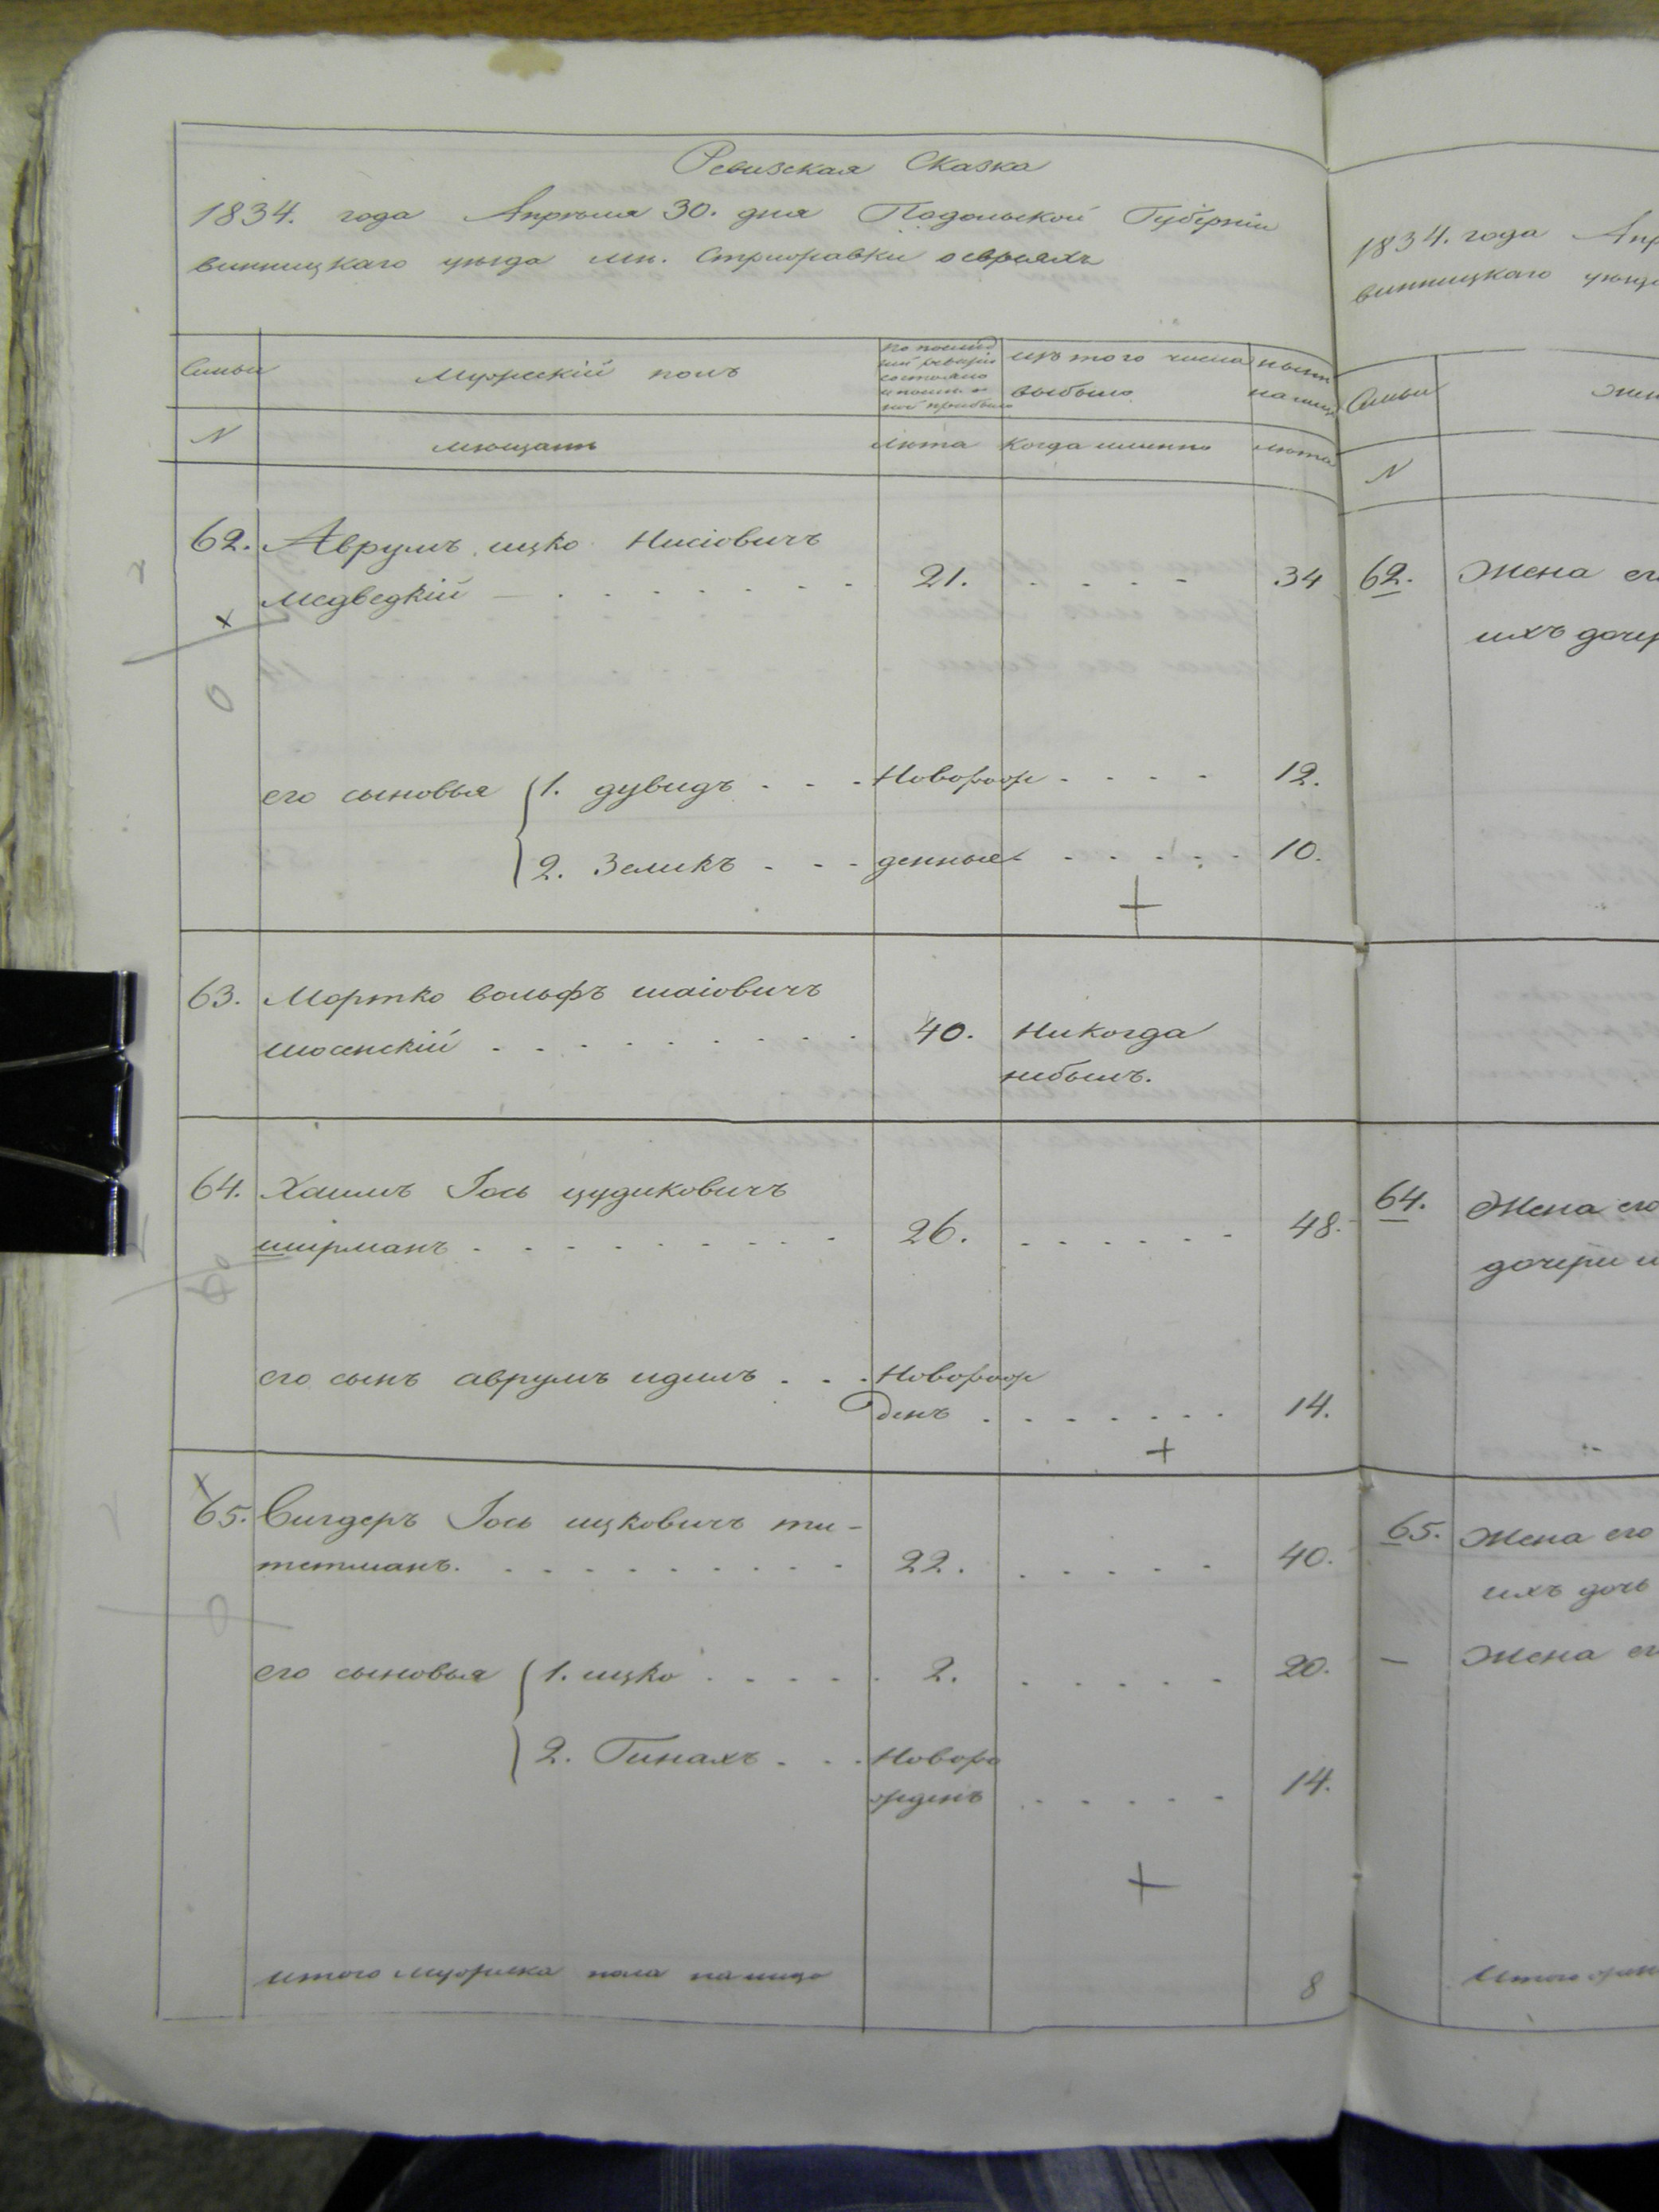 Ревизская Сказка
1834. года Апреля 30. дня Подольской Губерніи
винницкаго уезда мн. Стрижавки о евреяхъ
Семьи
Мужескій полъ
изъ того числа
выбыло
N
мещане
лета
когда именно
лета
62. Аврумъ ицко Нисіовичъ
Медведкій 21. 34
его сыновья 1. дувидъ Новорож 12.
2. Зеликъ денные 10.
63. Мортко вольфъ шаіовичъ
40. Никогда
небылъ.
64. Хаимъ Іось цудиковичъ
ширманъ 26. 48.
его сынъ аврумъ идель Новорож
денъ 14.
65. Сигдеръ Іось ицковичъ ти-
тетманъ. 22. 40.
его сыновья 1. ицко 2. 20.
2. Гинахъ Новоро
жденъ 14.
итого мужеска пола налицо 8
1834. года Апр
винницкаго уезд
Семьи
N
62. Жена ег
ихъ дочер
64. Жена его
дочери и
65. Жена его
ихъ дочь
— Жена ег
Итого жен